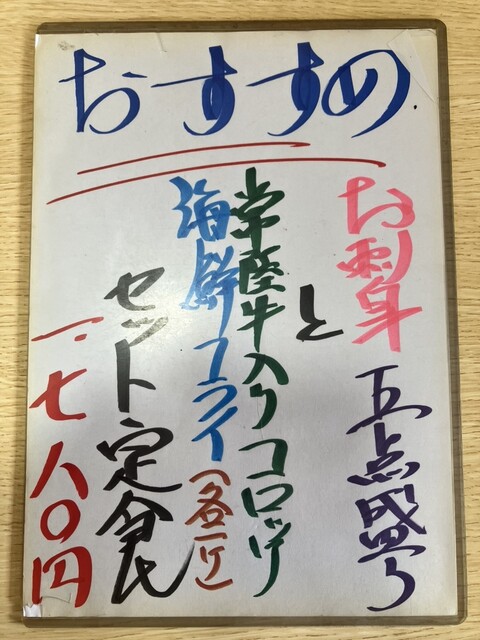 おすすめ
お刺身 五点盛り
と
常陸牛入りコロッケ
海鮮フライ(各一ケ)
セット定食
一.七八〇円